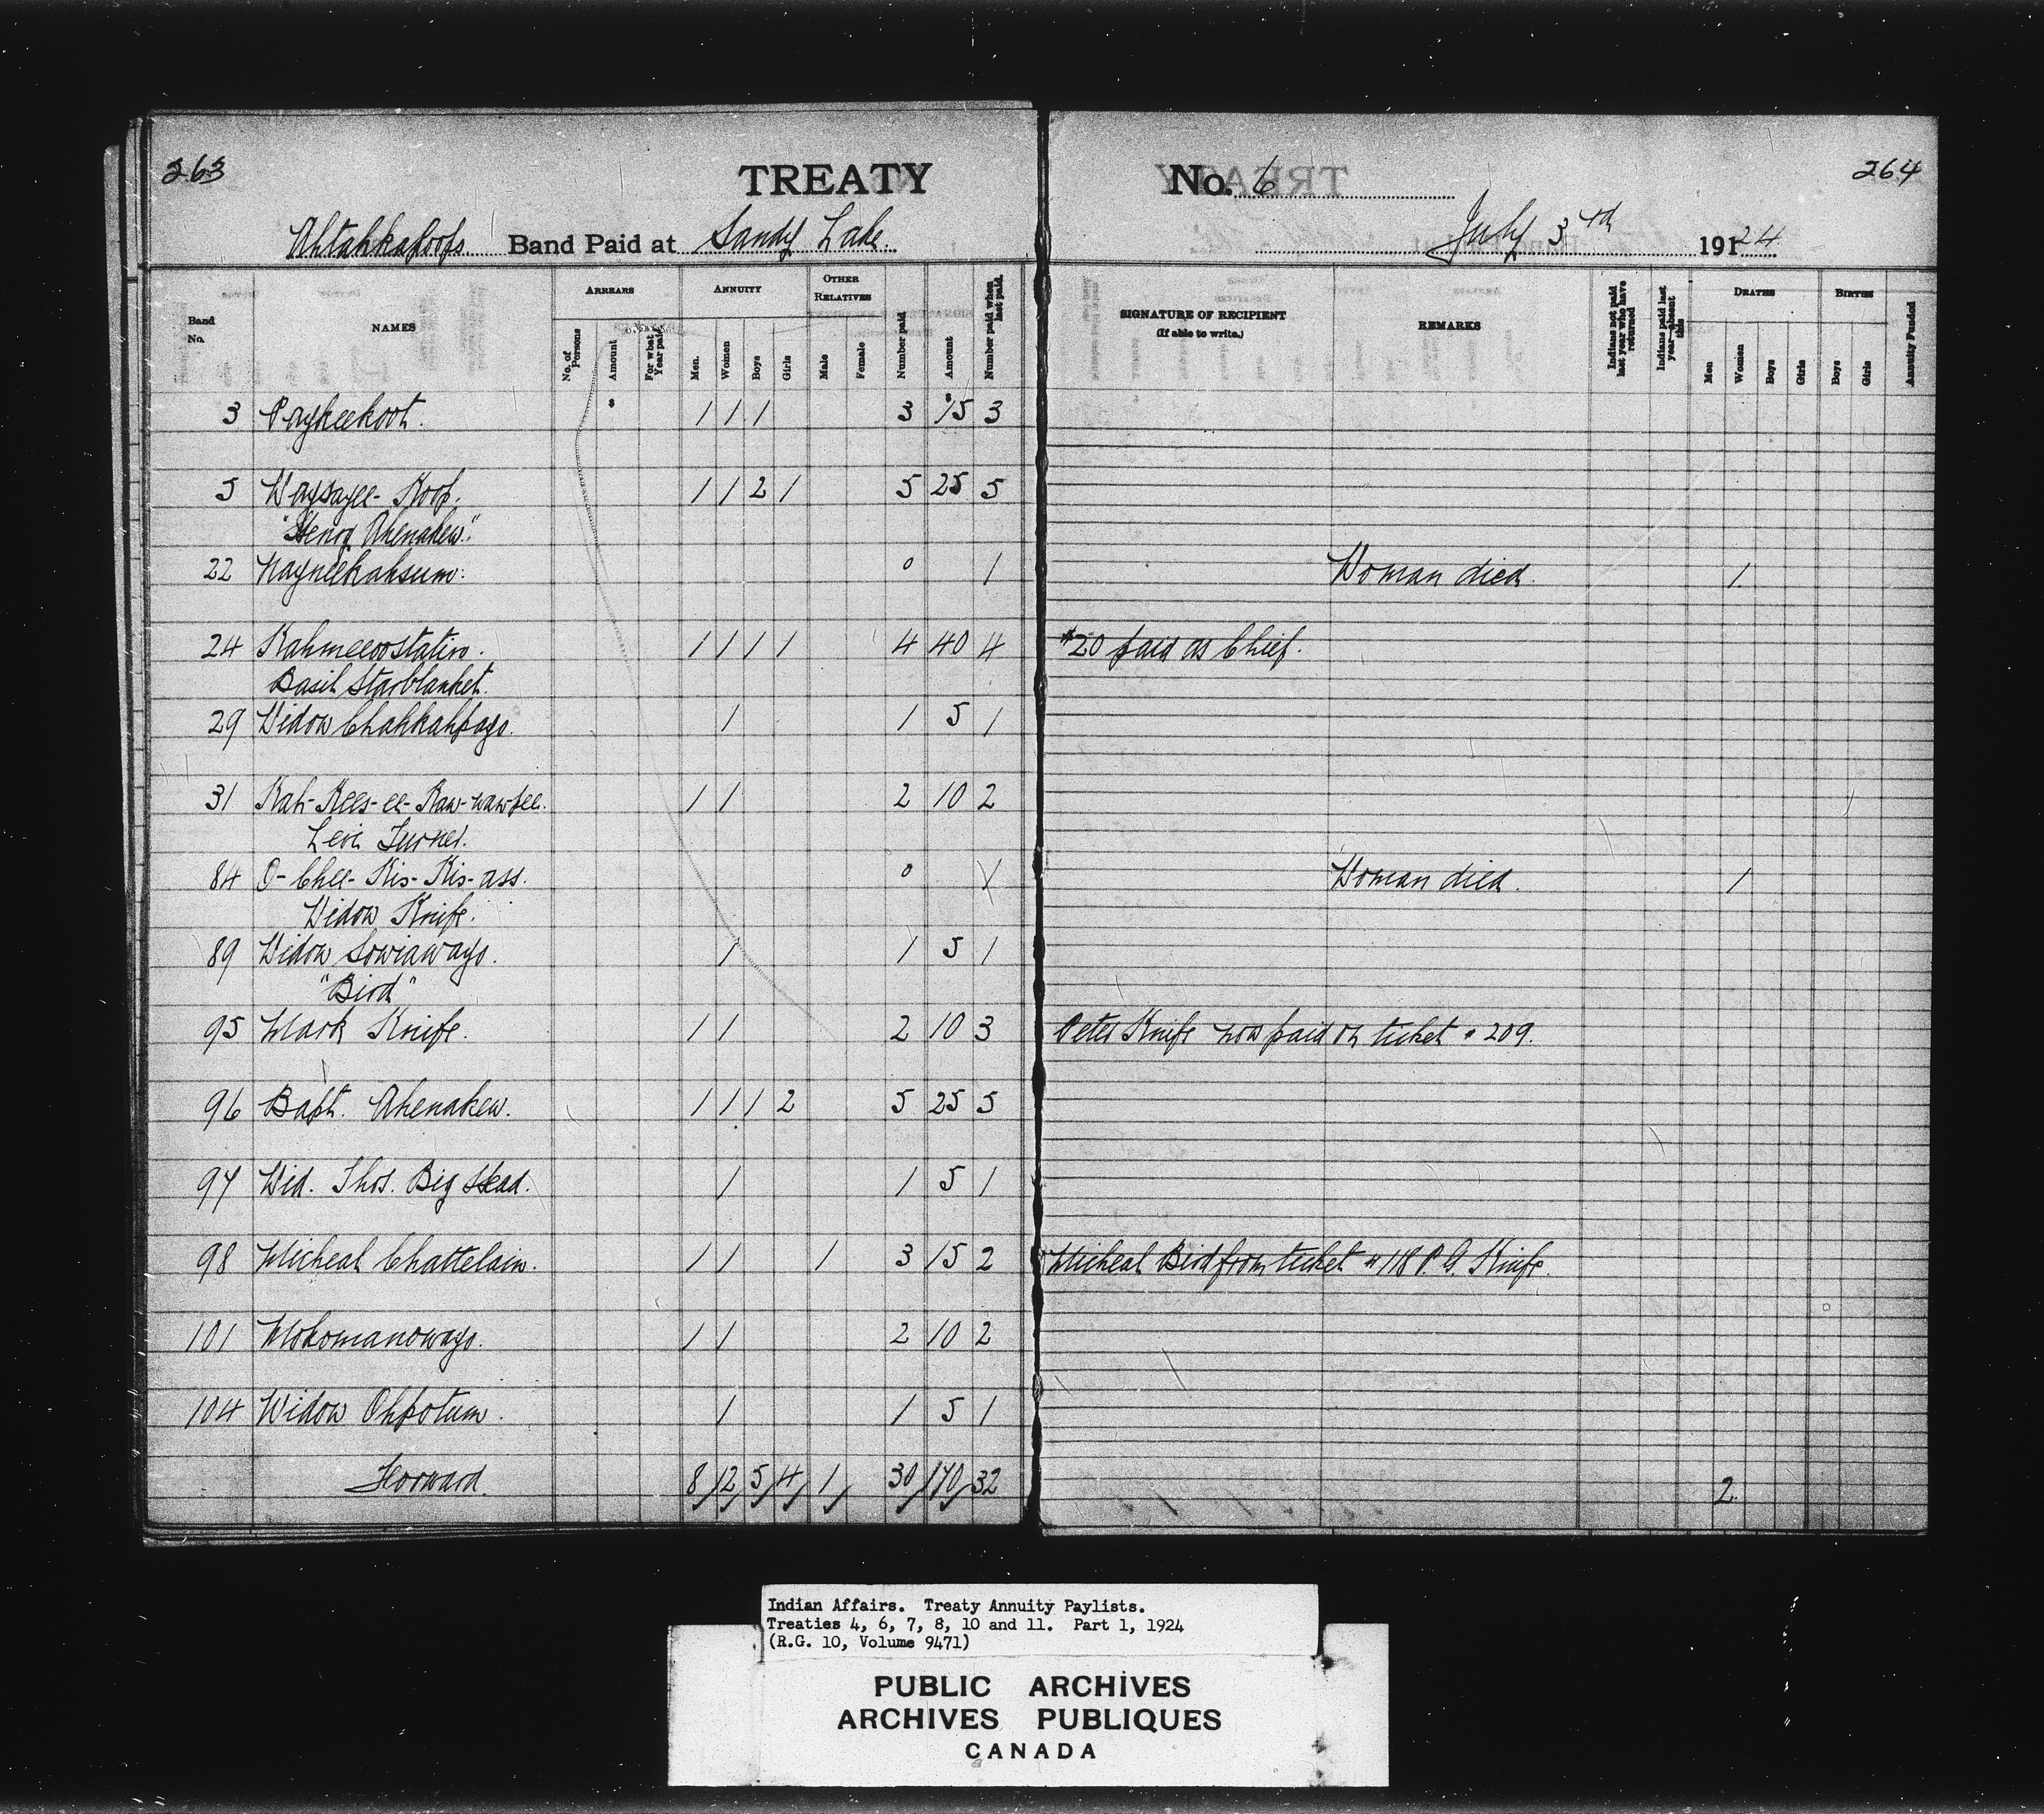 263
TREATY
No. 6
264
Ahtahkakoops Band Paid at Sandy Lake
July 3rd 1924
Band No.
NAMES
ARREARS
No. of Persons
Amount
For what Year paid
ANNUITY
Men.
Women
Boys
Girls
OTHER RELATIVES
Male
Female
Number paid
Amount
Number paid when last paid.
SIGNATURE OF RECIPIENT
(If able to write.)
REMARKS
Indians not paid last year who have returned
Indians paid last year—absent this
DEATHS
Men
Women
Boys
Girls
BIRTHS
Boys
Girls
Annuity Funded
3 Paykeekoot. 1 1 1 3 $15 3
5 Waysayee-Koop. 1 1 2 1 5 25 5
"Henry Ahenakew."
22 Nayneekahsum. 0 1 Woman died. 1
24 Kahmeeoostatin. 1 1 1 1 4 40 4 $20 paid as Chief.
Basil Starblanket.
29 Widow Chahkahpayo. 1 1 5 1
31 Kah-Kees-ee-Kaw-waw-pee. 1 1 2 10 2
Levi Turner.
84 O-Chee-Kis-Kis-ass. 0 1 Woman died. 1
Widow Knife.
89 Widow Sowiawayo. 1 1 5 1
"Bird"
95 Mark Knife. 1 1 2 10 3 Peter Knife now paid on ticket # 209.
96 Bapt. Ahenakew. 1 1 1 2 5 25 5
97 Wid. Thos. Big Head. 1 1 5 1
98 Micheal Chattelain. 1 1 1 3 15 2 Micheal Bird from ticket # 118 P. G. Knife.
101 Mokomanowayo. 1 1 2 10 2
104 Widow Ohpotum. 1 1 5 1
Forward. 8 12 5 4 1 30 170 32 2
Indian Affairs. Treaty Annuity Paylists.
Treaties 4, 6, 7, 8, 10 and 11. Part 1, 1924
(R.G. 10, Volume 9471)
PUBLIC ARCHIVES
ARCHIVES PUBLIQUES
CANADA